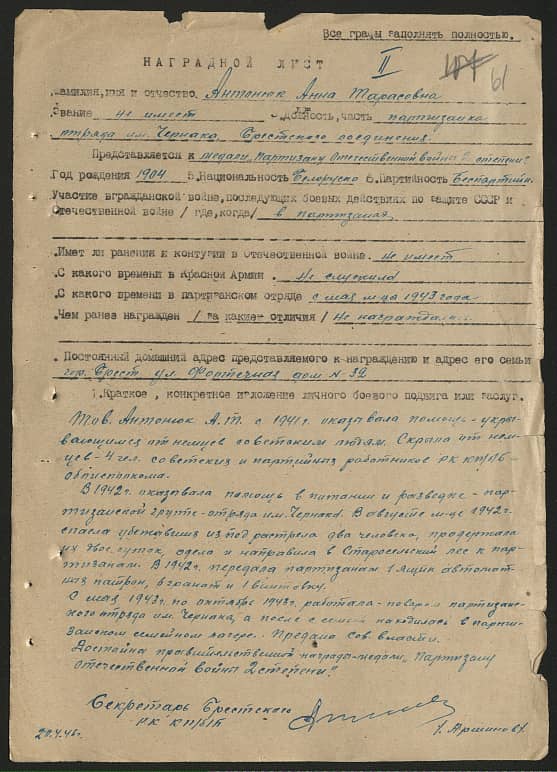 Все графы заполнять полностью.
НАГРАДНОЙ ЛИСТ
II
61
Фамилия, имя и отчество Антонюк Анна Тарасовна
Звание не имеет Должность, часть партизанка
отряда им. Чернака, Брестского соединения.
Представляется к медали "Партизану Отечественной Войны" 2 степени
Год рождения 1904 5. Национальность Белоруска 6. Партийность Беспартийн.
Участие в гражданской войне, последующих боевых действиях по защите СССР и
Отечественной войне / где, когда / в партизанах
. Имет ли ранения и контузии в отечественной войне. не имеет
. С какого времени в Красной Армии . Не служила
. С какого времени в партизанском отряде с мая м-ца 1943 года
. Чем ранее награжден / за какие отличия / Не награждал.
. Постоянный домашний адрес представляемого к награждению и адрес его семьи
гор. Брест ул. Фортечная дом № 32
I. Краткое, конкретное изложение личного боевого подвига или заслуг.
Тов. Антонюк А.Т. с 1941г. оказывала помощь - укры-
вающимся от немцев советским людям. Скрыла от нем-
цев - 4 чел. советских и партийных работников РК КП/б/Б -
облисполкома.
В 1942г. оказывала помощь в питании и разведке - пар-
тизанской группе - отряда им. Чернака. В августе м-це 1942г.
спасла убежавших из под растрела два человека, продержала
их двое суток, одела и направила в Старосельский лес к пар-
тизанам. В 1942г. передала партизанам 1 ящик автомат-
ных патрон, 8 гранат и 1 винтовку.
С мая 1943г. по октябрь 1943г. работала - поваром партизанс-
кого отряда им. Чернака, а после с семьей находилась в парти-
занском семейном лагере. Предана сов. власти.
Достойна правительственной награды - медали "Партизану
Отечественной Войны 2 степени"
Секретарь Брестского
РК КП/б/Б
20.4.46г.